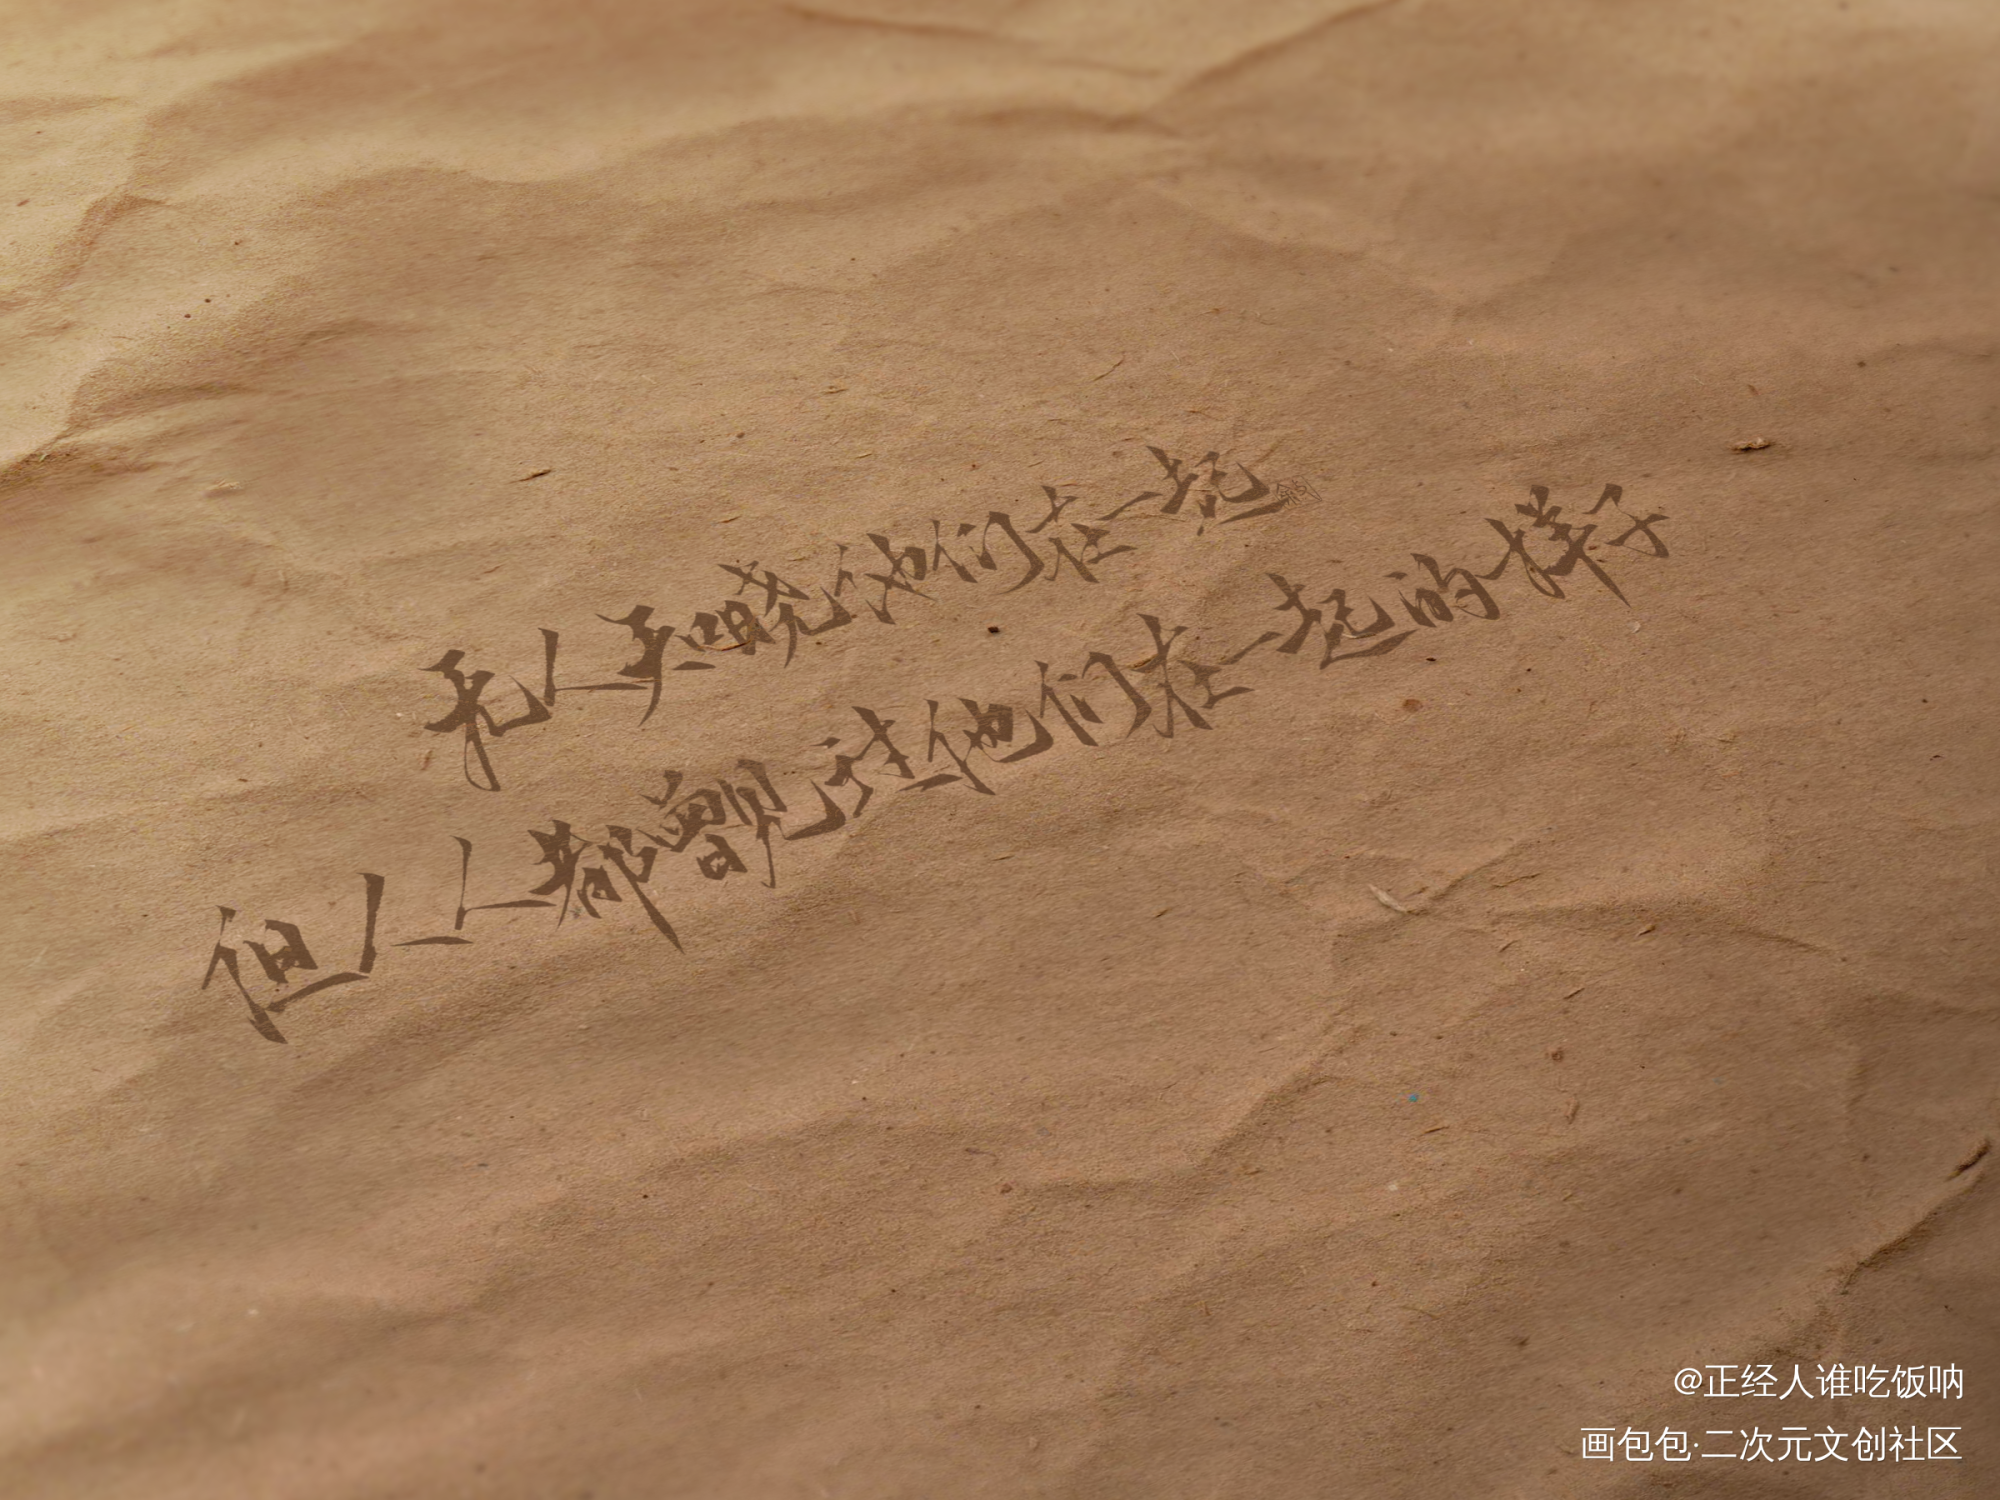 无人知晓他们在一起
但人人都曾见过他们在一起的样子
@正经人谁吃饭呐
画包包·二次元文创社区